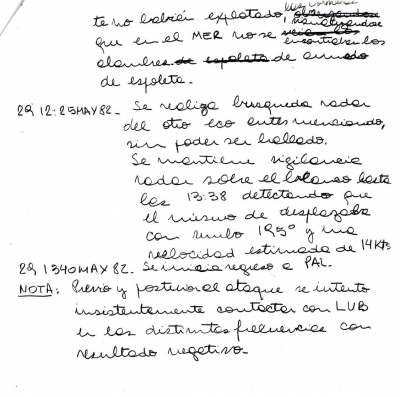 te no habian explotado,
que en el MER no se encontraban los
alambres de armado
de espoleta.
29 12:25MAY82. Se realiza busqueda radar
del otro eco antes mencionado,
sin poder ser hallado.
Se mantiene vigilancia
radar sobre el blanco hasta
las 13:38 detectando que
el mismo se desplazaba
con rumbo 195° y una
velocidad estimada de 14 Kts
29 1340MAY82. Se inicia regreso a PAL.
NOTA: Previo y posterior al ataque se intento
insistentemente contactar con LUB
en las distintas frecuencias con
resultado negativo.